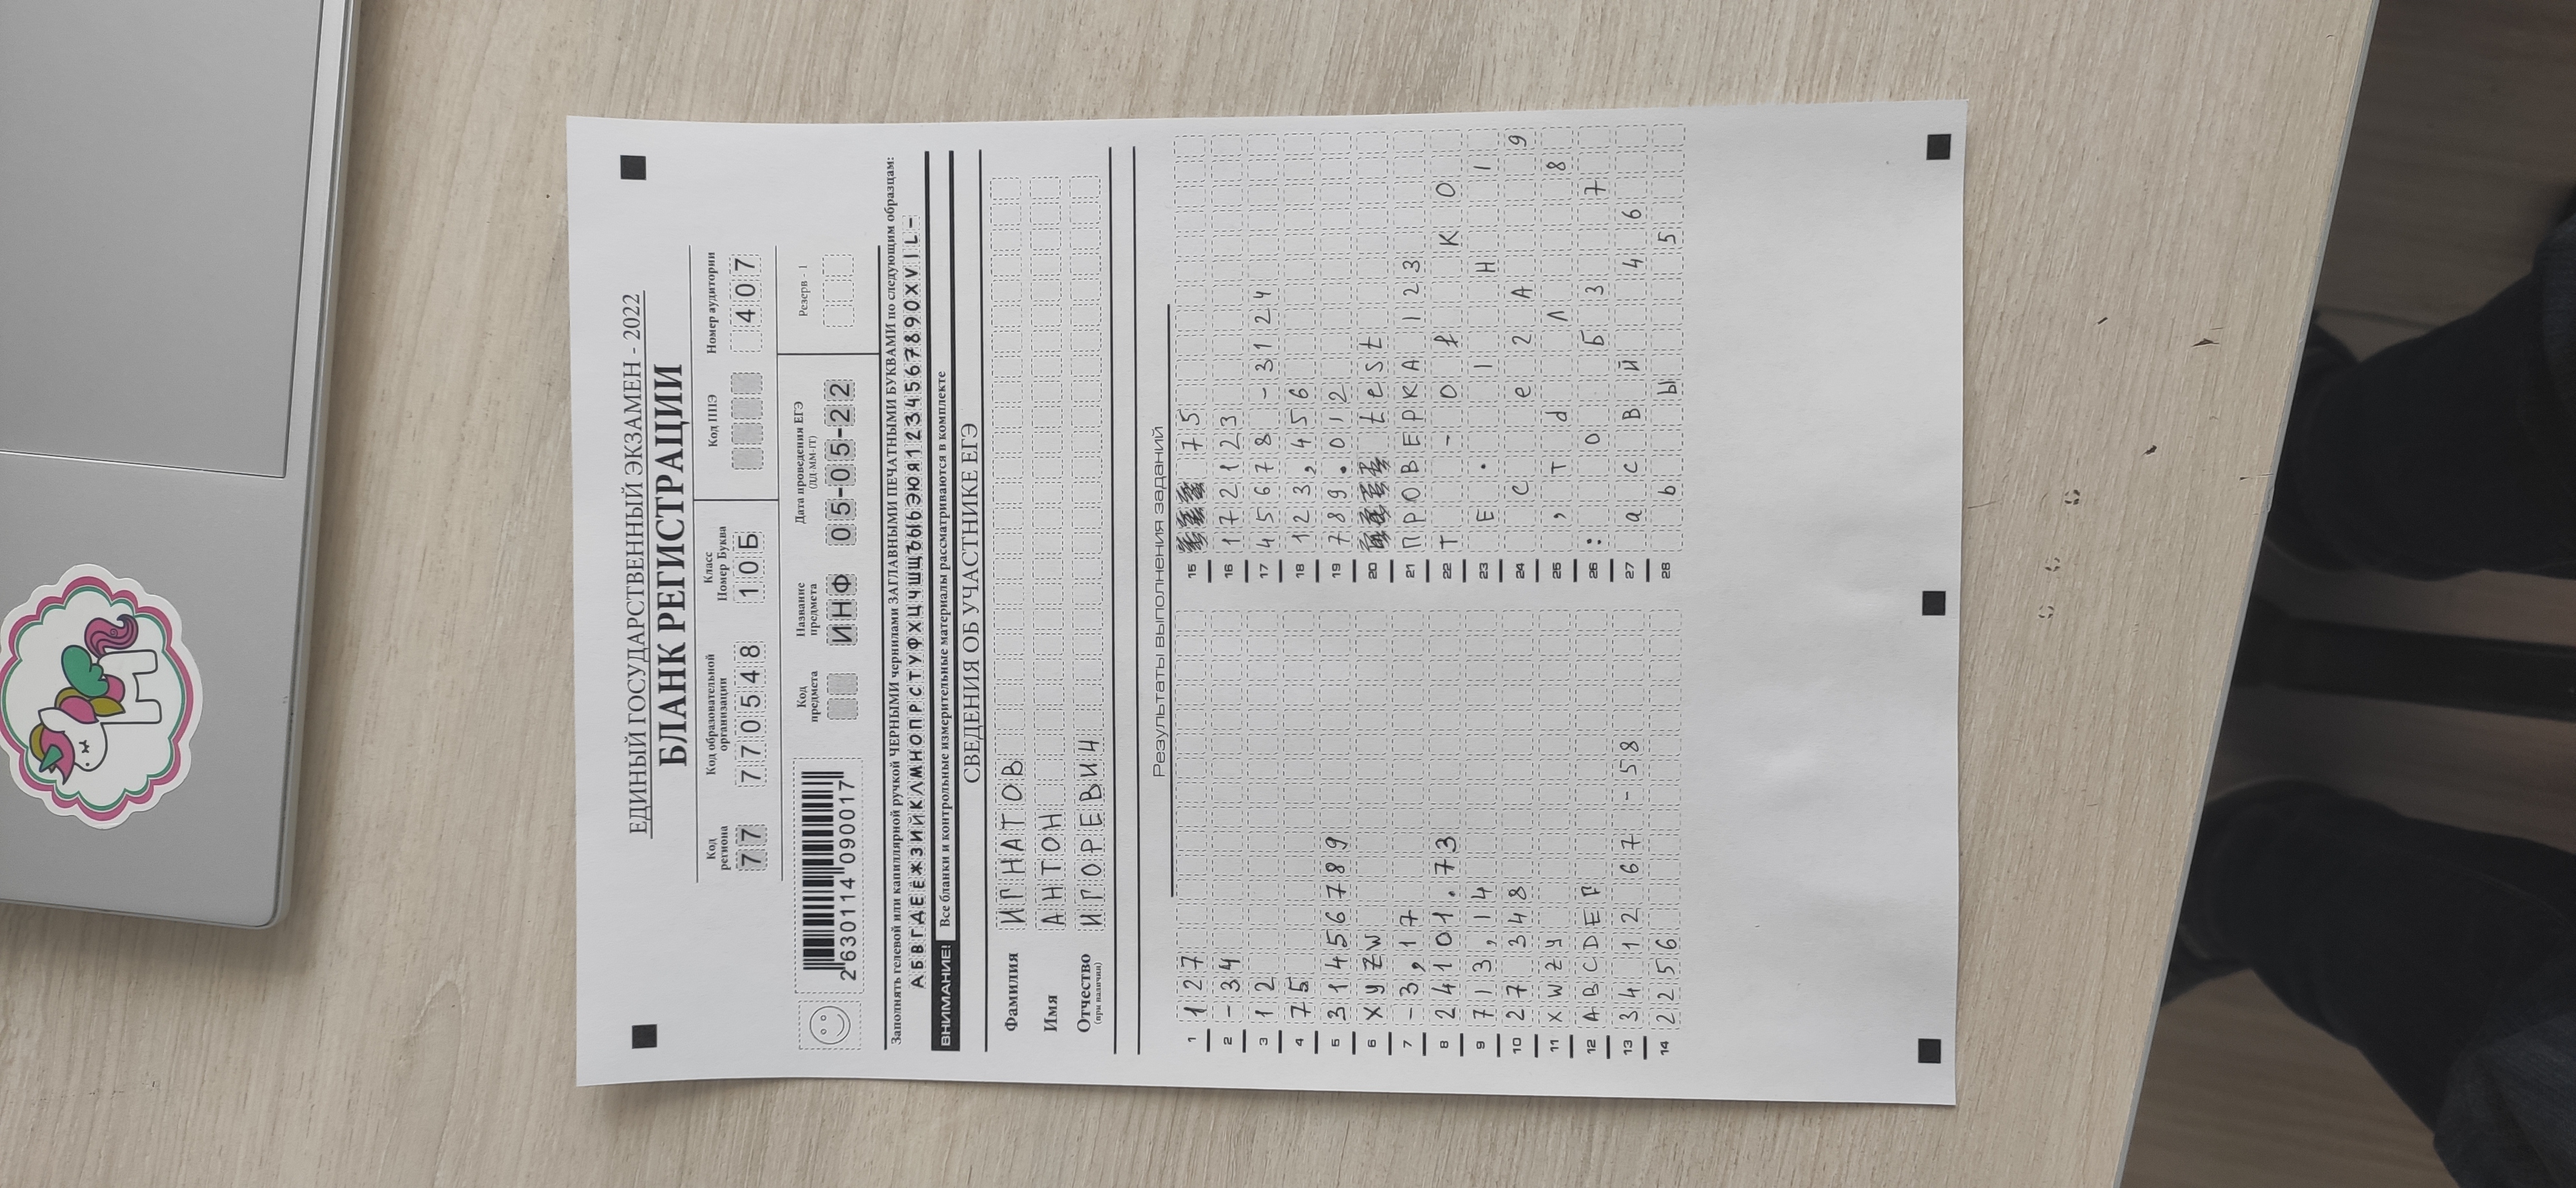 ЕДИНЫЙ ГОСУДАРСТВЕННЫЙ ЭКЗАМЕН - 2022
БЛАНК РЕГИСТРАЦИИ
Код региона
Код образовательной организации
Класс
Номер Буква
Код ППЭ
Номер аудитории
77
770548
10Б
407
2 630114 090017
Код предмета
Название предмета
Дата проведения ЕГЭ
(ДД-ММ-ГГ)
Резерв - 1
ИНФ
05-05-22
Заполнять гелевой или капиллярной ручкой ЧЕРНЫМИ чернилами ЗАГЛАВНЫМИ ПЕЧАТНЫМИ БУКВАМИ по следующим образцам:
АБВГДЕЁЖЗИЙКЛМНОПРСТУФХЦЧШЩЪЫЬЭЮЯ1234567890XVIL-
ВНИМАНИЕ! Все бланки и контрольные измерительные материалы рассматриваются в комплекте
СВЕДЕНИЯ ОБ УЧАСТНИКЕ ЕГЭ
Фамилия ИГНАТОВ
Имя АНТОН
Отчество ИГОРЕВИЧ
(при наличии)
Результаты выполнения заданий
1 127
2 -34
3 12
4 75
5 31456789
6 xyzw
7 -3,17
8 24101.73
9 713,14
10 27 348
11 xwzy
12 ABCDEF
13 34 12 67 -58
14 2256
15 75
16 172123
17 45678 -3124
18 123,456
19 789.012
20 test
21 ПРОВЕРКА 123
22 Т - О К О
23 Е . 1 Н 1
24 С е 2 А 9
25 , т d Л 8
26 : О Б 3 7
27 а с В Й 4 6
28 Ь Ы 5